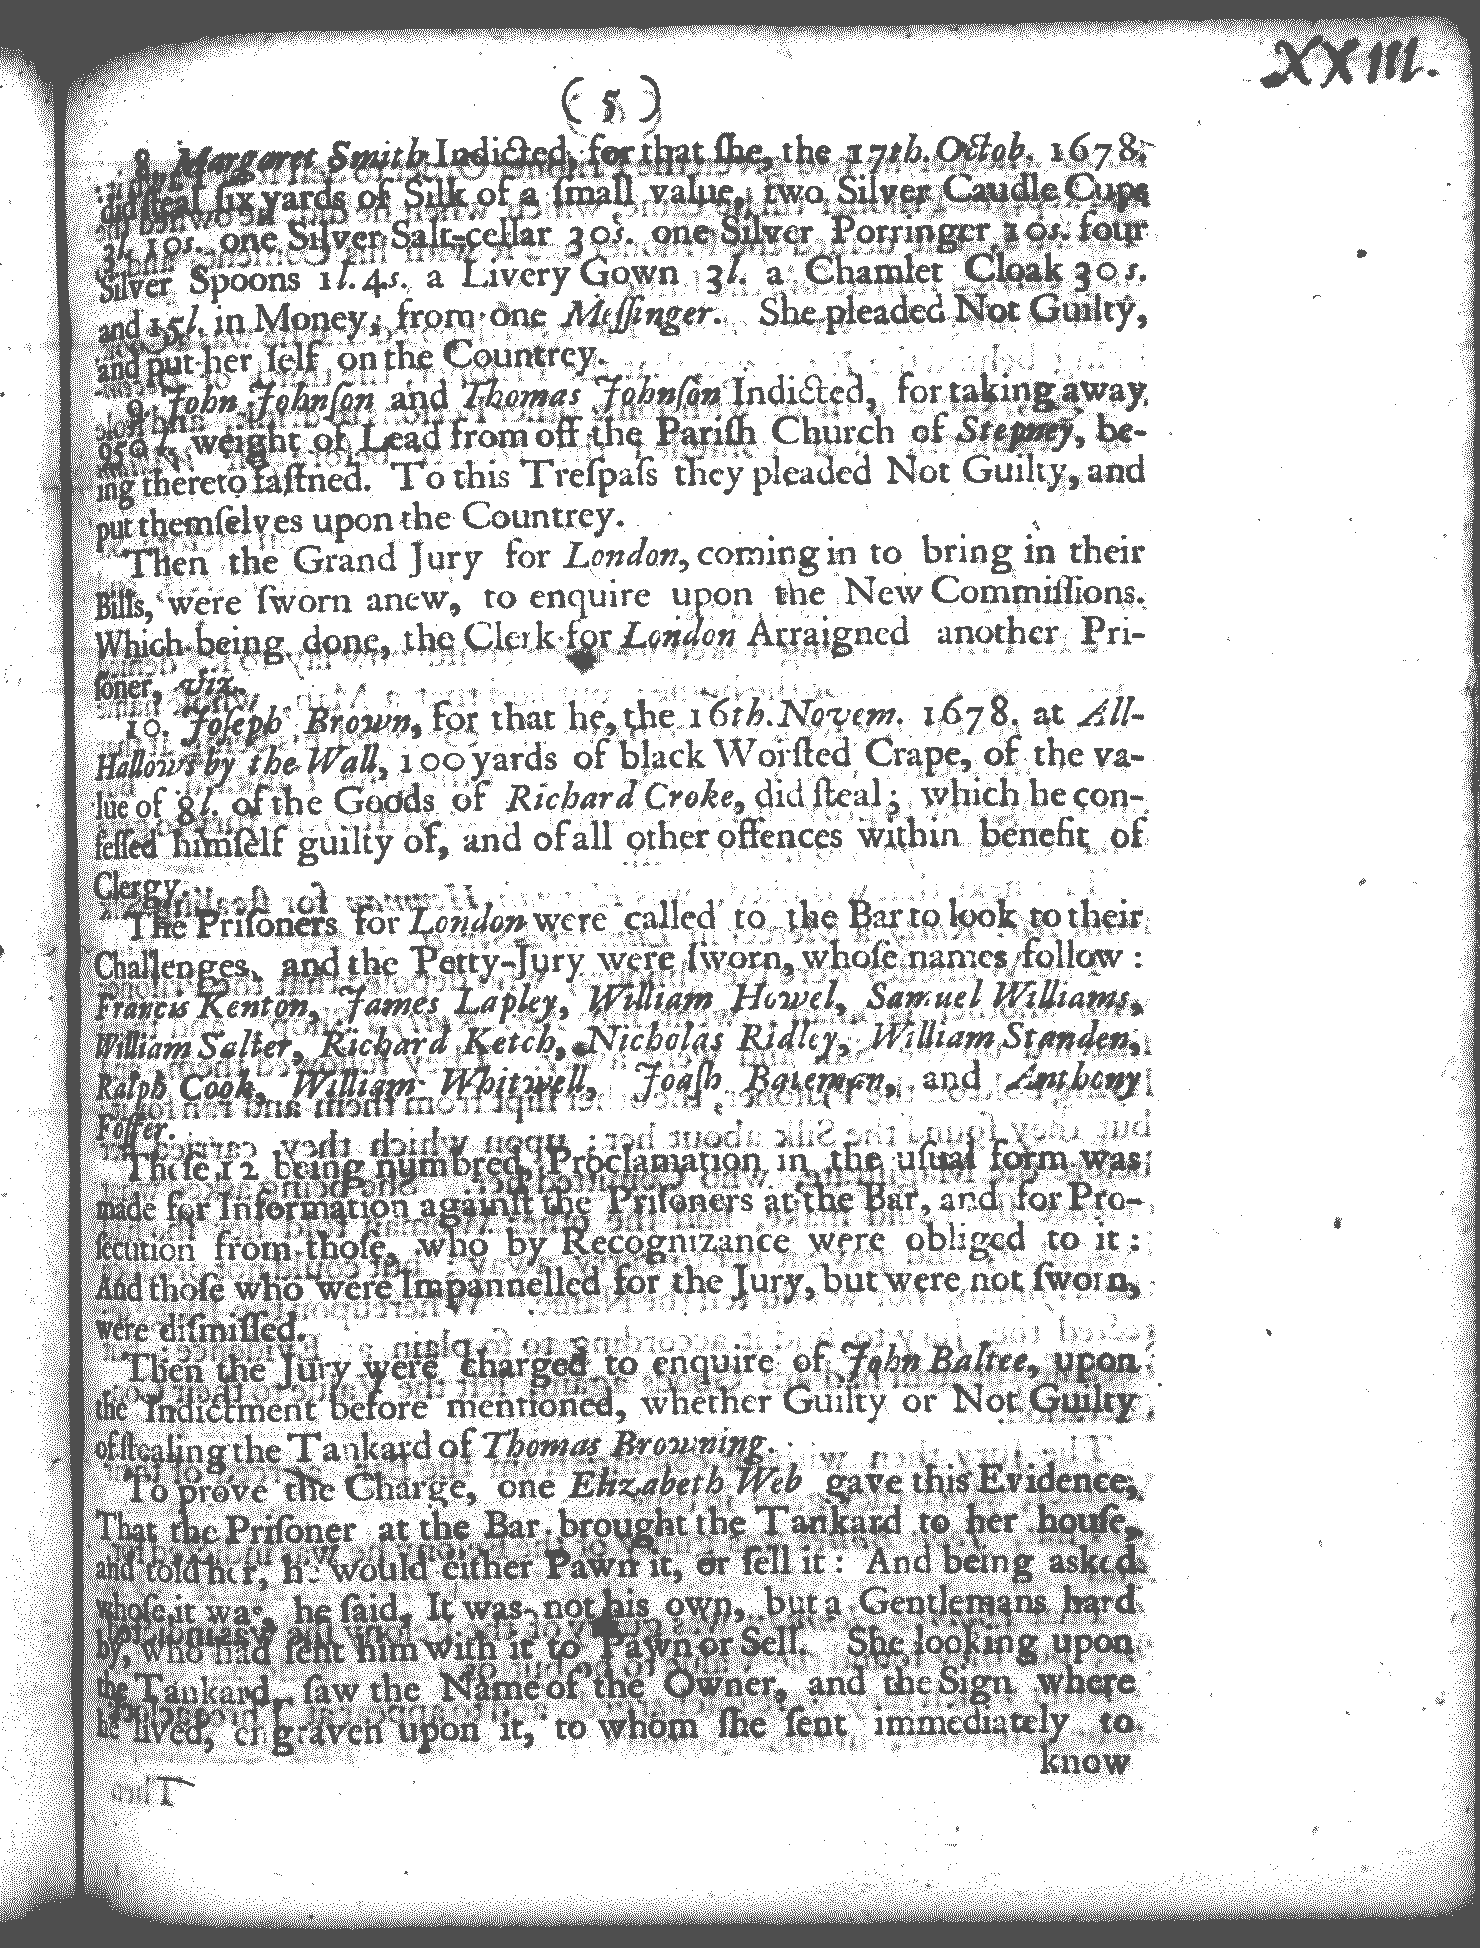 XXIII.
( 5 )
8. Margaret Smith Indicted, for that ſhe, the 17th. Octob. 1678.
did ſteal ſix yards of Silk of a ſmall value, two Silver Caudle Cups
3l. 10s. one Silver Salt-cellar 30s. one Silver Porringer 10s. four
Silver Spoons 1l. 4s. a Livery Gown 3l. a Chamlet Cloak 30s.
and 15l. in Money, from one Meſſinger. She pleaded Not Guilty,
and put her ſelf on the Countrey.
9. John Johnſon and Thomas Johnſon Indicted, for taking away
950 l. weight of Lead from off the Pariſh Church of Stepney, be-
ing thereto faſtned. To this Treſpaſs they pleaded Not Guilty, and
put themſelves upon the Countrey.
Then the Grand Jury for London, coming in to bring in their
Bills, were ſworn anew, to enquire upon the New Commiſſions.
Which being done, the Clerk for London Arraigned another Pri-
ſoner, viz.
10. Joſeph Brown, for that he, the 16th. Novem. 1678. at All-
Hallows by the Wall, 100 yards of black Worſted Crape, of the va-
lue of 8l. of the Goods of Richard Croke, did ſteal; which he con-
feſſed himſelf guilty of, and of all other offences within benefit of
Clergy.
The Priſoners for London were called to the Bar to look to their
Challenges, and the Petty-Jury were ſworn, whoſe names follow:
Francis Kenton, James Lapley, William Howel, Samuel Williams,
William Salter, Richard Ketch, Nicholas Ridley, William Standen,
Ralph Cook, William Whitwell, Joaſh Bateman, and Anthony
Foſter.
Theſe 12 being numbred, Proclamation in the uſual form was
made for Information againſt the Priſoners at the Bar, and for Pro-
ſecution from thoſe, who by Recognizance were obliged to it:
And thoſe who were Impannelled for the Jury, but were not ſworn,
were diſmiſſed.
Then the Jury were charged to enquire of John Baltee, upon
the Indictment before mentioned, whether Guilty or Not Guilty
of ſtealing the Tankard of Thomas Browning.
To prove the Charge, one Elizabeth Web gave this Evidence,
That the Priſoner at the Bar brought the Tankard to her houſe,
and told her, he would either Pawn it, or ſell it: And being asked
whoſe it was, he ſaid, It was not his own, but a Gentlemans hard
by, who had ſent him with it to Pawn or Sell. She looking upon
the Tankard, ſaw the Name of the Owner, and the Sign where
he lived, engraven upon it, to whom ſhe ſent immediately to
know